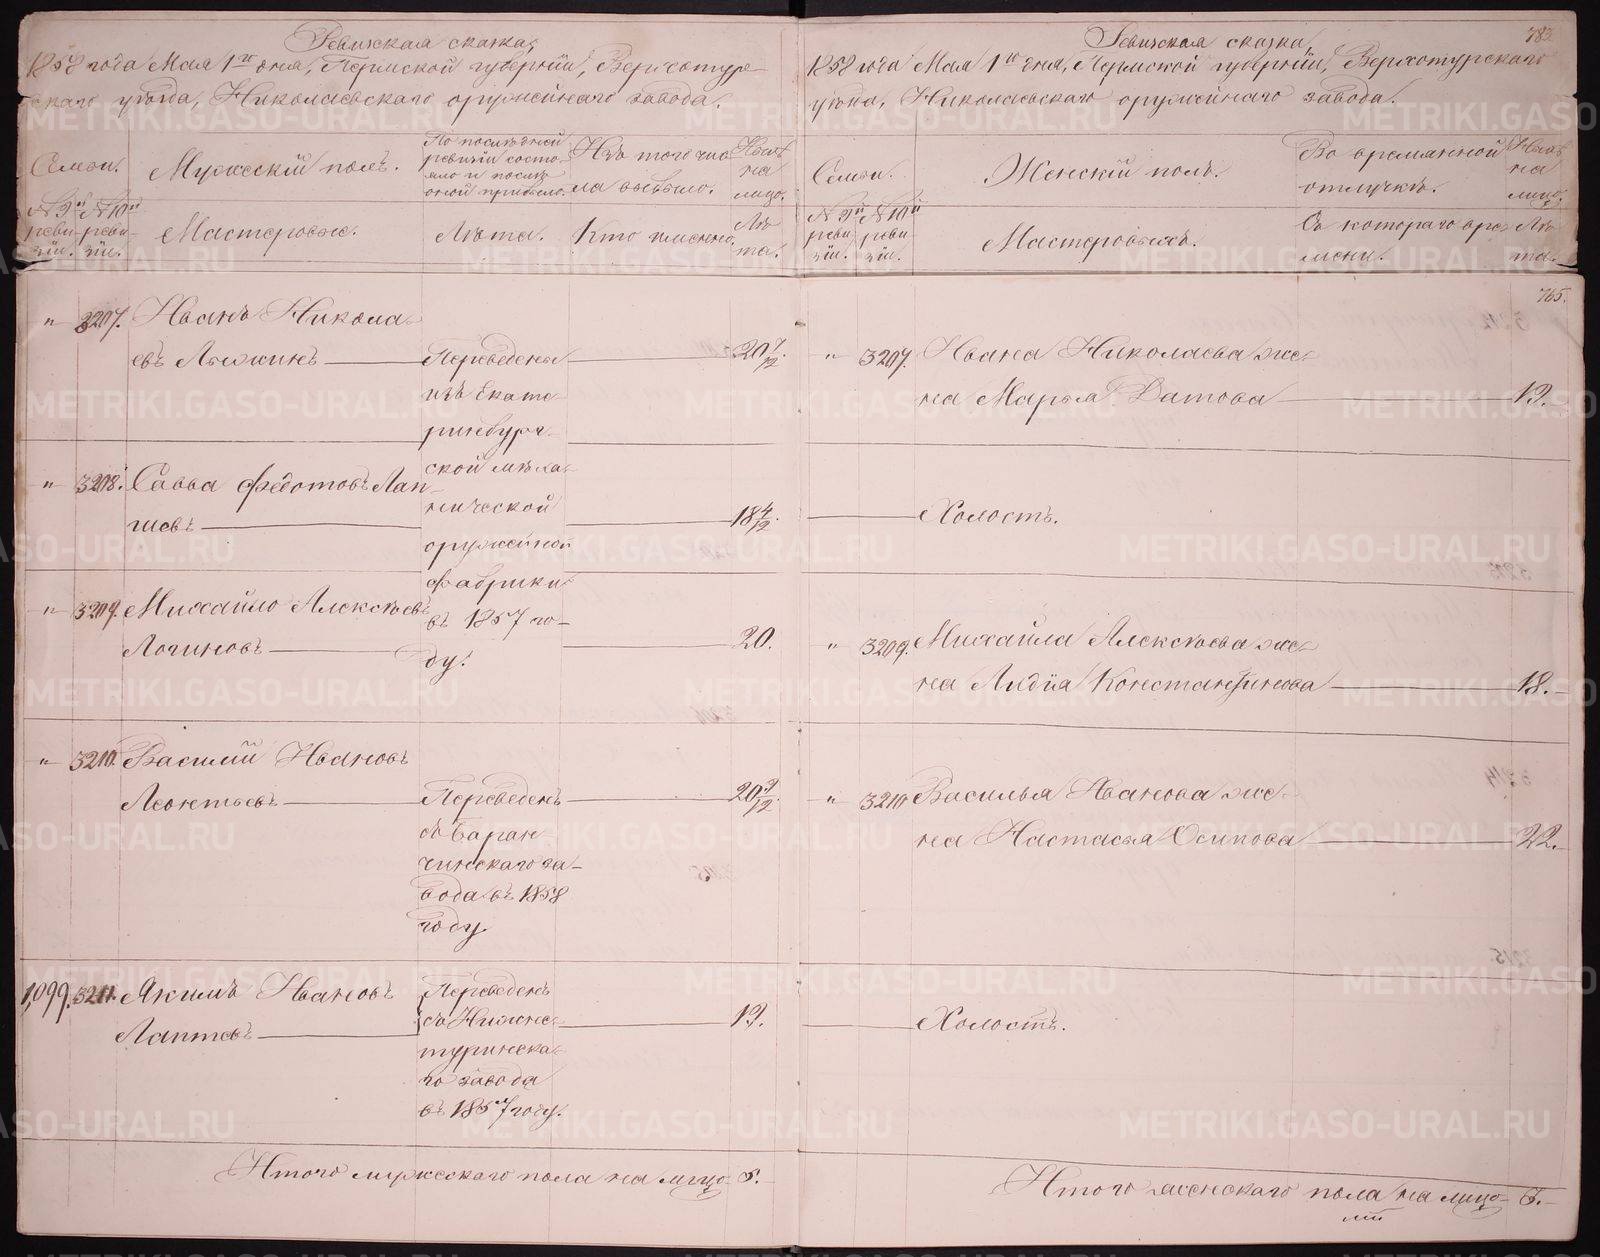 Ревижская сказка,
1858 года Мая 1го дня, Пермской губернии, Верхотур-
скаго уѣзда, Николаевскаго оружейнаго завода.
Семьи.
Мужескій полъ.
По послѣдней
ревизіи состо-
яло и послѣ
оной прибыло.
Изъ того чис-
ла выбыло.
Нынѣ
на
лицо.
№ 9й
реви-
зіи.
№ 10й
реви-
зіи.
Мастеровые.
Лѣта.
Кто именно.
Лѣ-
та.
" 3207. Иванъ Никола-
евъ Лыжинъ
Переведены
изъ Екате-
ринбург-
ской меха-
нической
оружейной
фабрики
въ 1857 го-
ду.
20 7/12.
" 3208. Савва Федотовъ Лап-
18 4/12.
" 3209. Михайло Алексѣевъ
Логиновъ
20.
" 3210. Василій Ивановъ
Леонтьевъ
Переведенъ
съ Баран-
чинскаго за-
вода въ 1858
году.
20 9/12.
1,099. 3211. Якимъ Ивановъ
Лаптевъ
Переведенъ
съ Нижне-
туринска-
го завода
въ 1857 году.
19.
Итого мужескаго пола на лицо 5.
383
Ревижская сказка,
1858 года Мая 1го дня, Пермской губерніи, Верхотурскаго
уѣзда, Николаевскаго оружейнаго завода.
Семьи.
Женскій полъ.
Во временной
отлучкѣ.
Нынѣ
на
лицо.
№ 9й
реви-
зіи.
№ 10й
реви-
зіи.
Мастеровыхъ.
Съ котораго вре-
мени.
Лѣ-
та.
765.
" 3207. Ивана Николаева же-
на Марья
19.
Холостъ.
" 3209. Михайла Алексѣева же-
на Лидія Константинова
18.
" 3210 Василья Иванова же-
на Настасья Осипова
22.
Холостъ.
Итого женскаго пола на лицо 3.
METRIKI.GASO-URAL.RU